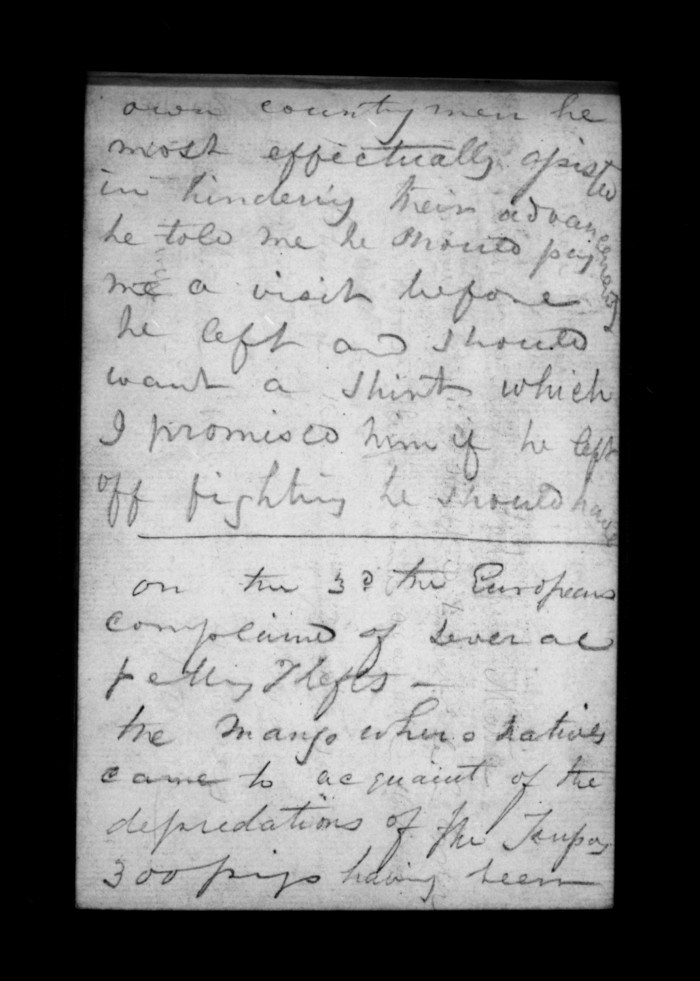 own countymen he
most effectually assisted
in hindering their advancement
he told me he should pay
me a visit before
he left and should
want a shirt which
I promised him if he left
off fighting he should have
on the 3d the Europeans
complained of several
petty Thefts —
the Mangowhero natives
came to acquaint of the
depredations of the Taupos
300 pigs having been